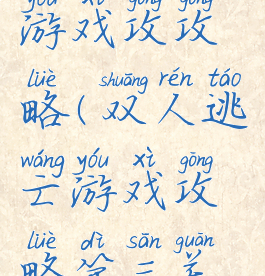 yóu xì gōng gōng
游戏攻攻
lüè shuāng rén táo
略(双人逃
wáng yóu xì gōng
亡游戏攻
lüè dì sān guān
略第三关